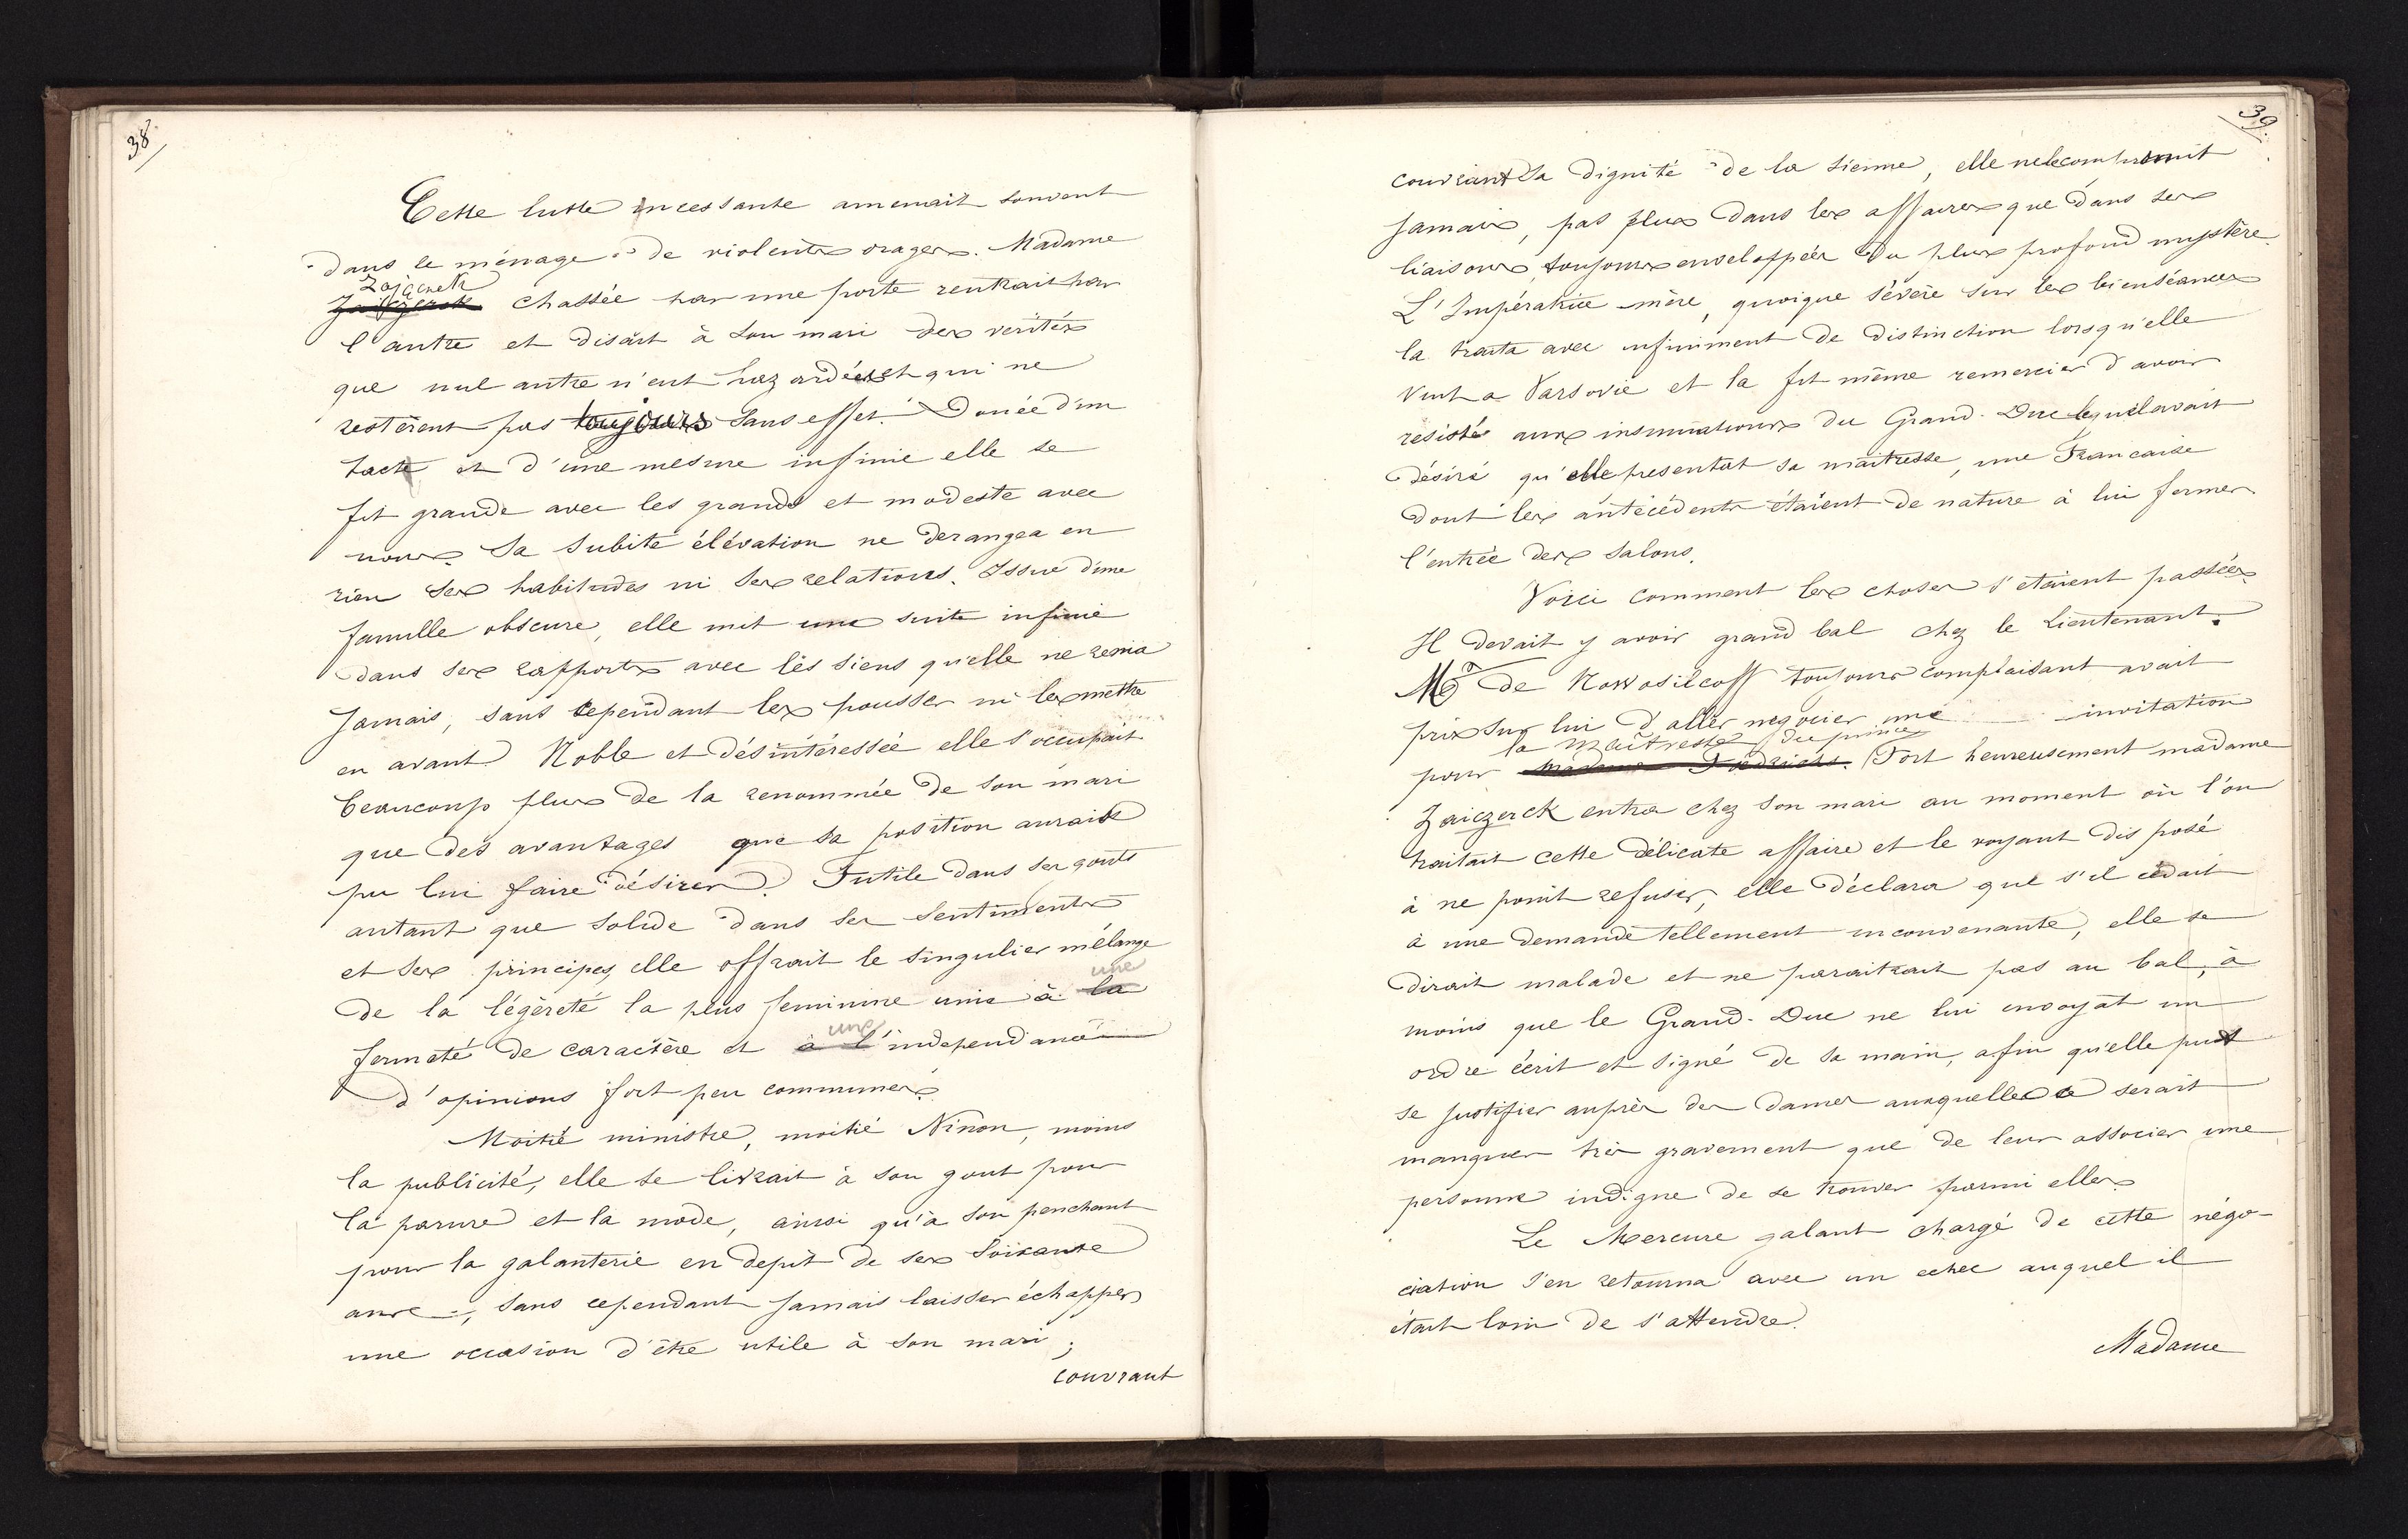 38
Cette lutte incessante amenait souvent
dans le ménage de violents orages. Madame
Zajączek
Zaiczerck chassée par une porte rentrait par
l'autre et disait à son mari des verités
que nul autre n'eut hazardées et qui ne
restèrent pas toujours sans effet. Douée d'un
tact et d'une mesure infinie elle se
fit grande avec les grands et modeste avec
nous. Sa subite élévation ne derangea en
rien ses habitudes ni ses relations. Issue d'une
famille obscure, elle mit une suite infinie
dans ses rapports avec les siens qu'elle ne renia
jamais, sans cependant les pousser ni les mettre
en avant. Noble et désintéressée elle s'occupait
beaucoup plus de la renommée de son mari
que des avantages que sa position aurait
pu lui faire désirer. Futile dans ses goûts
autant que solide dans ses sentiments
et ses principes, elle offrait le singulier mélange
une
de la légèreté la plus feminine unie à la
une
fermeté de caractère et à l'independance
d'opinions fort peu communes.
Moitié ministre, moitié Ninon, moins
la publicité, elle se livrait à son gout pour
la parure et la mode, ainsi qu'à son penchant
pour la galanterie en depit de ses soixante
ans, sans cependant jamais laisser échapper
une occasion d'être utile à son mari;
couvrant
39
couvrant sa dignité de la sienne, elle ne le compromit
jamais, pas plus dans les affaires que dans ses
liaisons, toujours enveloppées du plus profond mystère.
L'Impératrice mère, quoique sévère sur les bienséances
la traita avec infiniment de distinction lorsqu'elle
vint a Varsovie et la fit même remercier d'avoir
resisté aux insinuations du Grand-Duc lequel avait
désiré qu'elle presentat sa maitresse, une Francaise
dont les antécédents étaient de nature à lui fermer
l'entrée des salons.
Voici comment les choses s'etaient passées.
Il devait y avoir grand bal chez le Lieutenant.
Mr de Nowosilcoff toujours complaisant avait
pris sur lui d'aller negocier une invitation
la maîtresse du prince
pour madame Fridrichs. Fort heureusement madame
Zaiczerck entra chez son mari au moment où l'on
traitait cette délicate affaire et le voyant disposé
à ne point refuser, elle déclara que s'il cédait
à une demande tellement inconvenante, elle se
dirait malade et ne paraitrait pas au bal, à
moins que le Grand-Duc ne lui envoyât un
ordre écrit et signé de sa main, afin qu'elle put
se justifier auprès des dames auxquelles ce serait
manquer très gravement que de leur associer une
personne indigne de se trouver parmi elles.
Le Mercure galant chargé de cette négo-
ciation s'en retourna avec un echec auquel il
était loin de s'attendre.
Madame